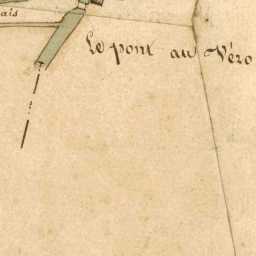 ais
Le pont au Véro